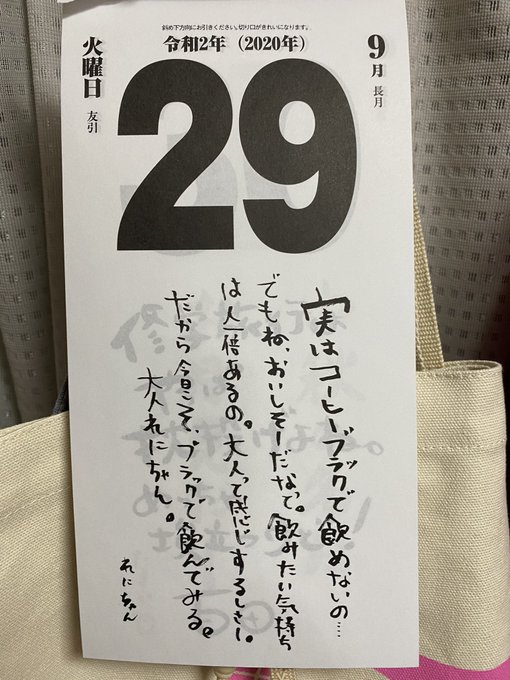 斜め下方向にお引きください。切り口がきれいになります。
令和2年（2020年）
9月 長月
火曜日 友引
29
実はコーヒーブラックで飲めないの…
でもね、おいしそーだなって。飲みたい気持ち
は人一倍あるの。大人って感じするしさ。
だから今日こそ、ブラックで飲んでみる。
大人れにちゃん。
れにちゃん